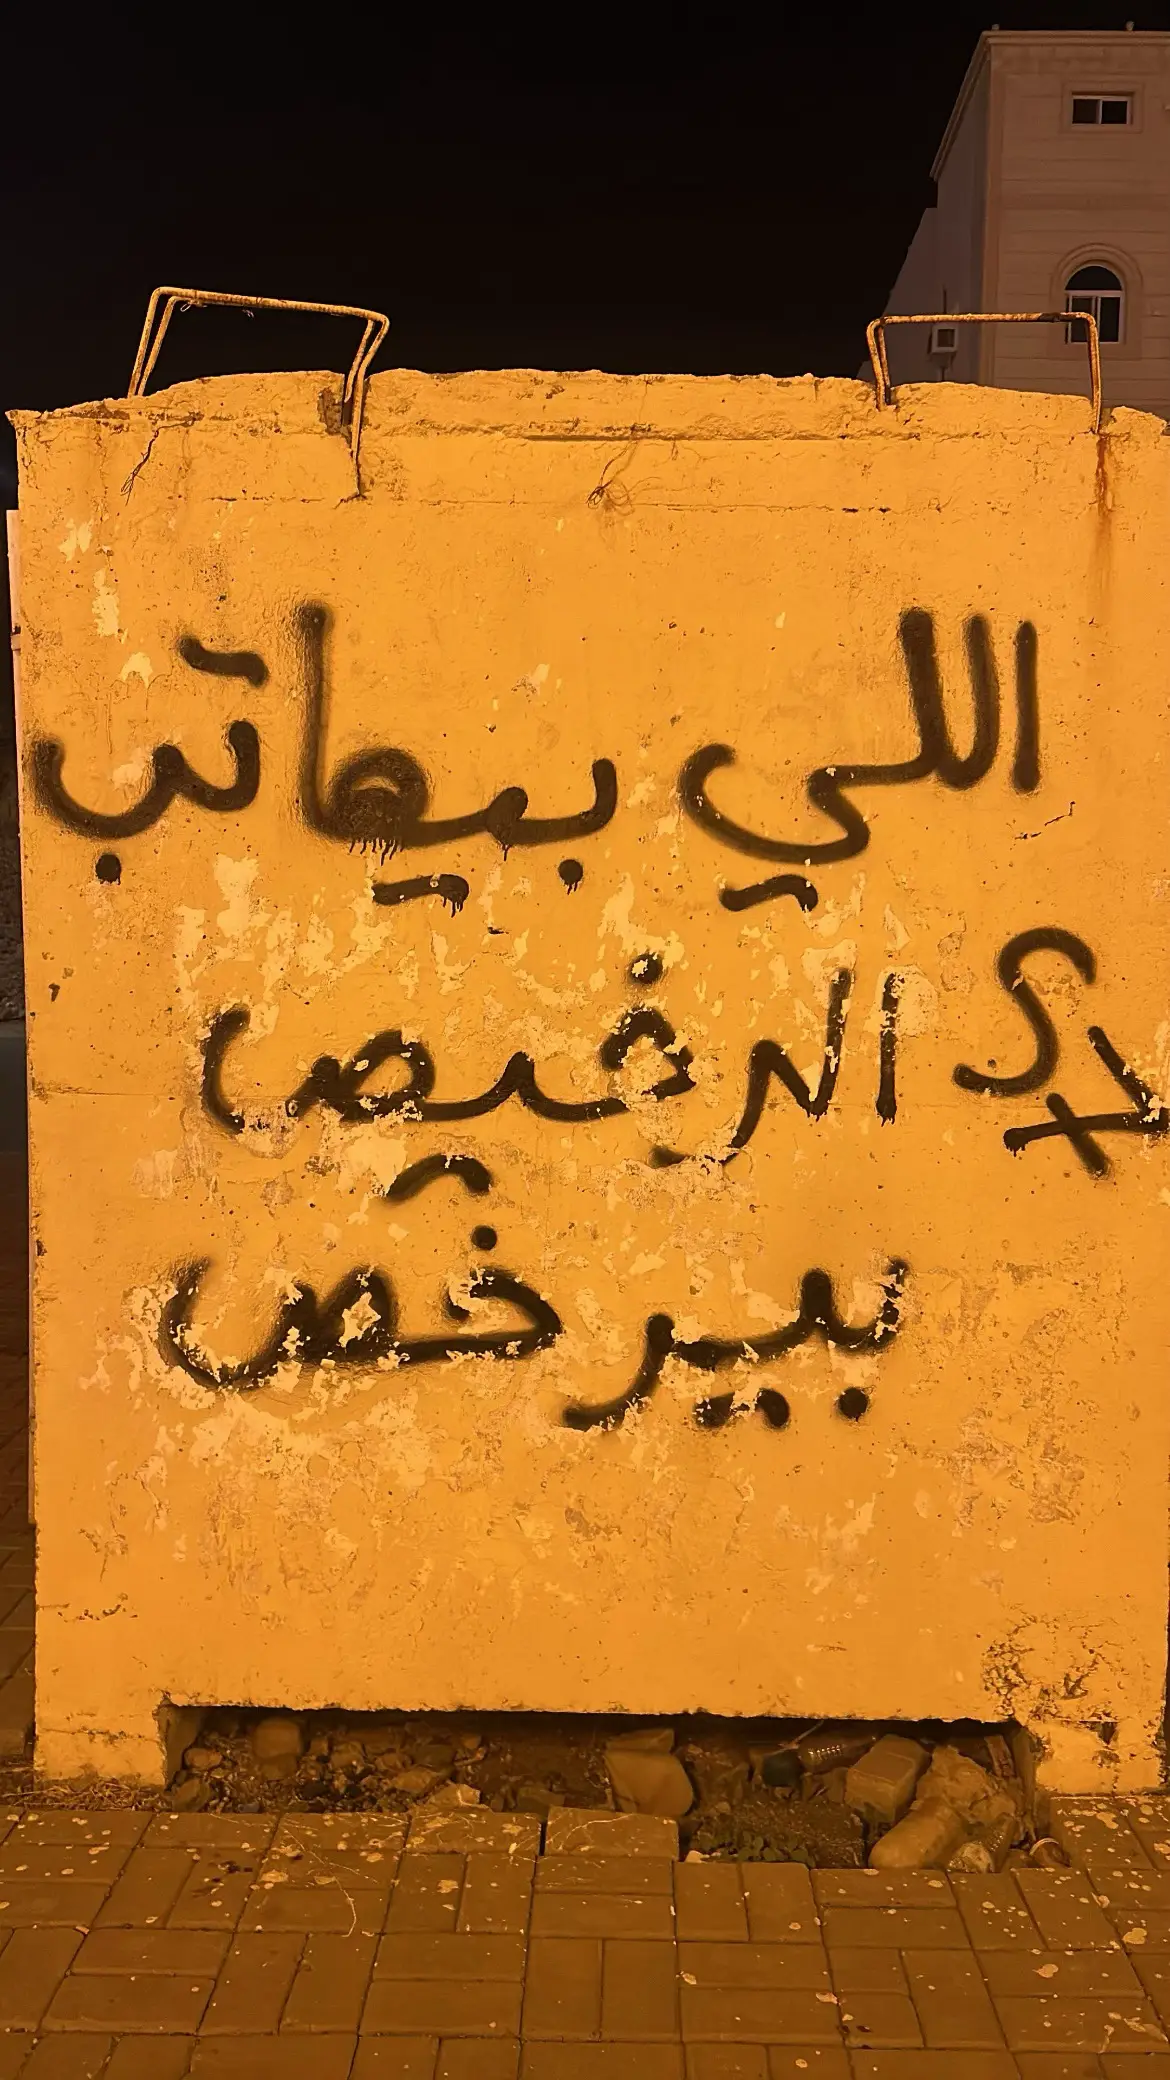 اللي بيعاتب
الرخيص
بيرخص